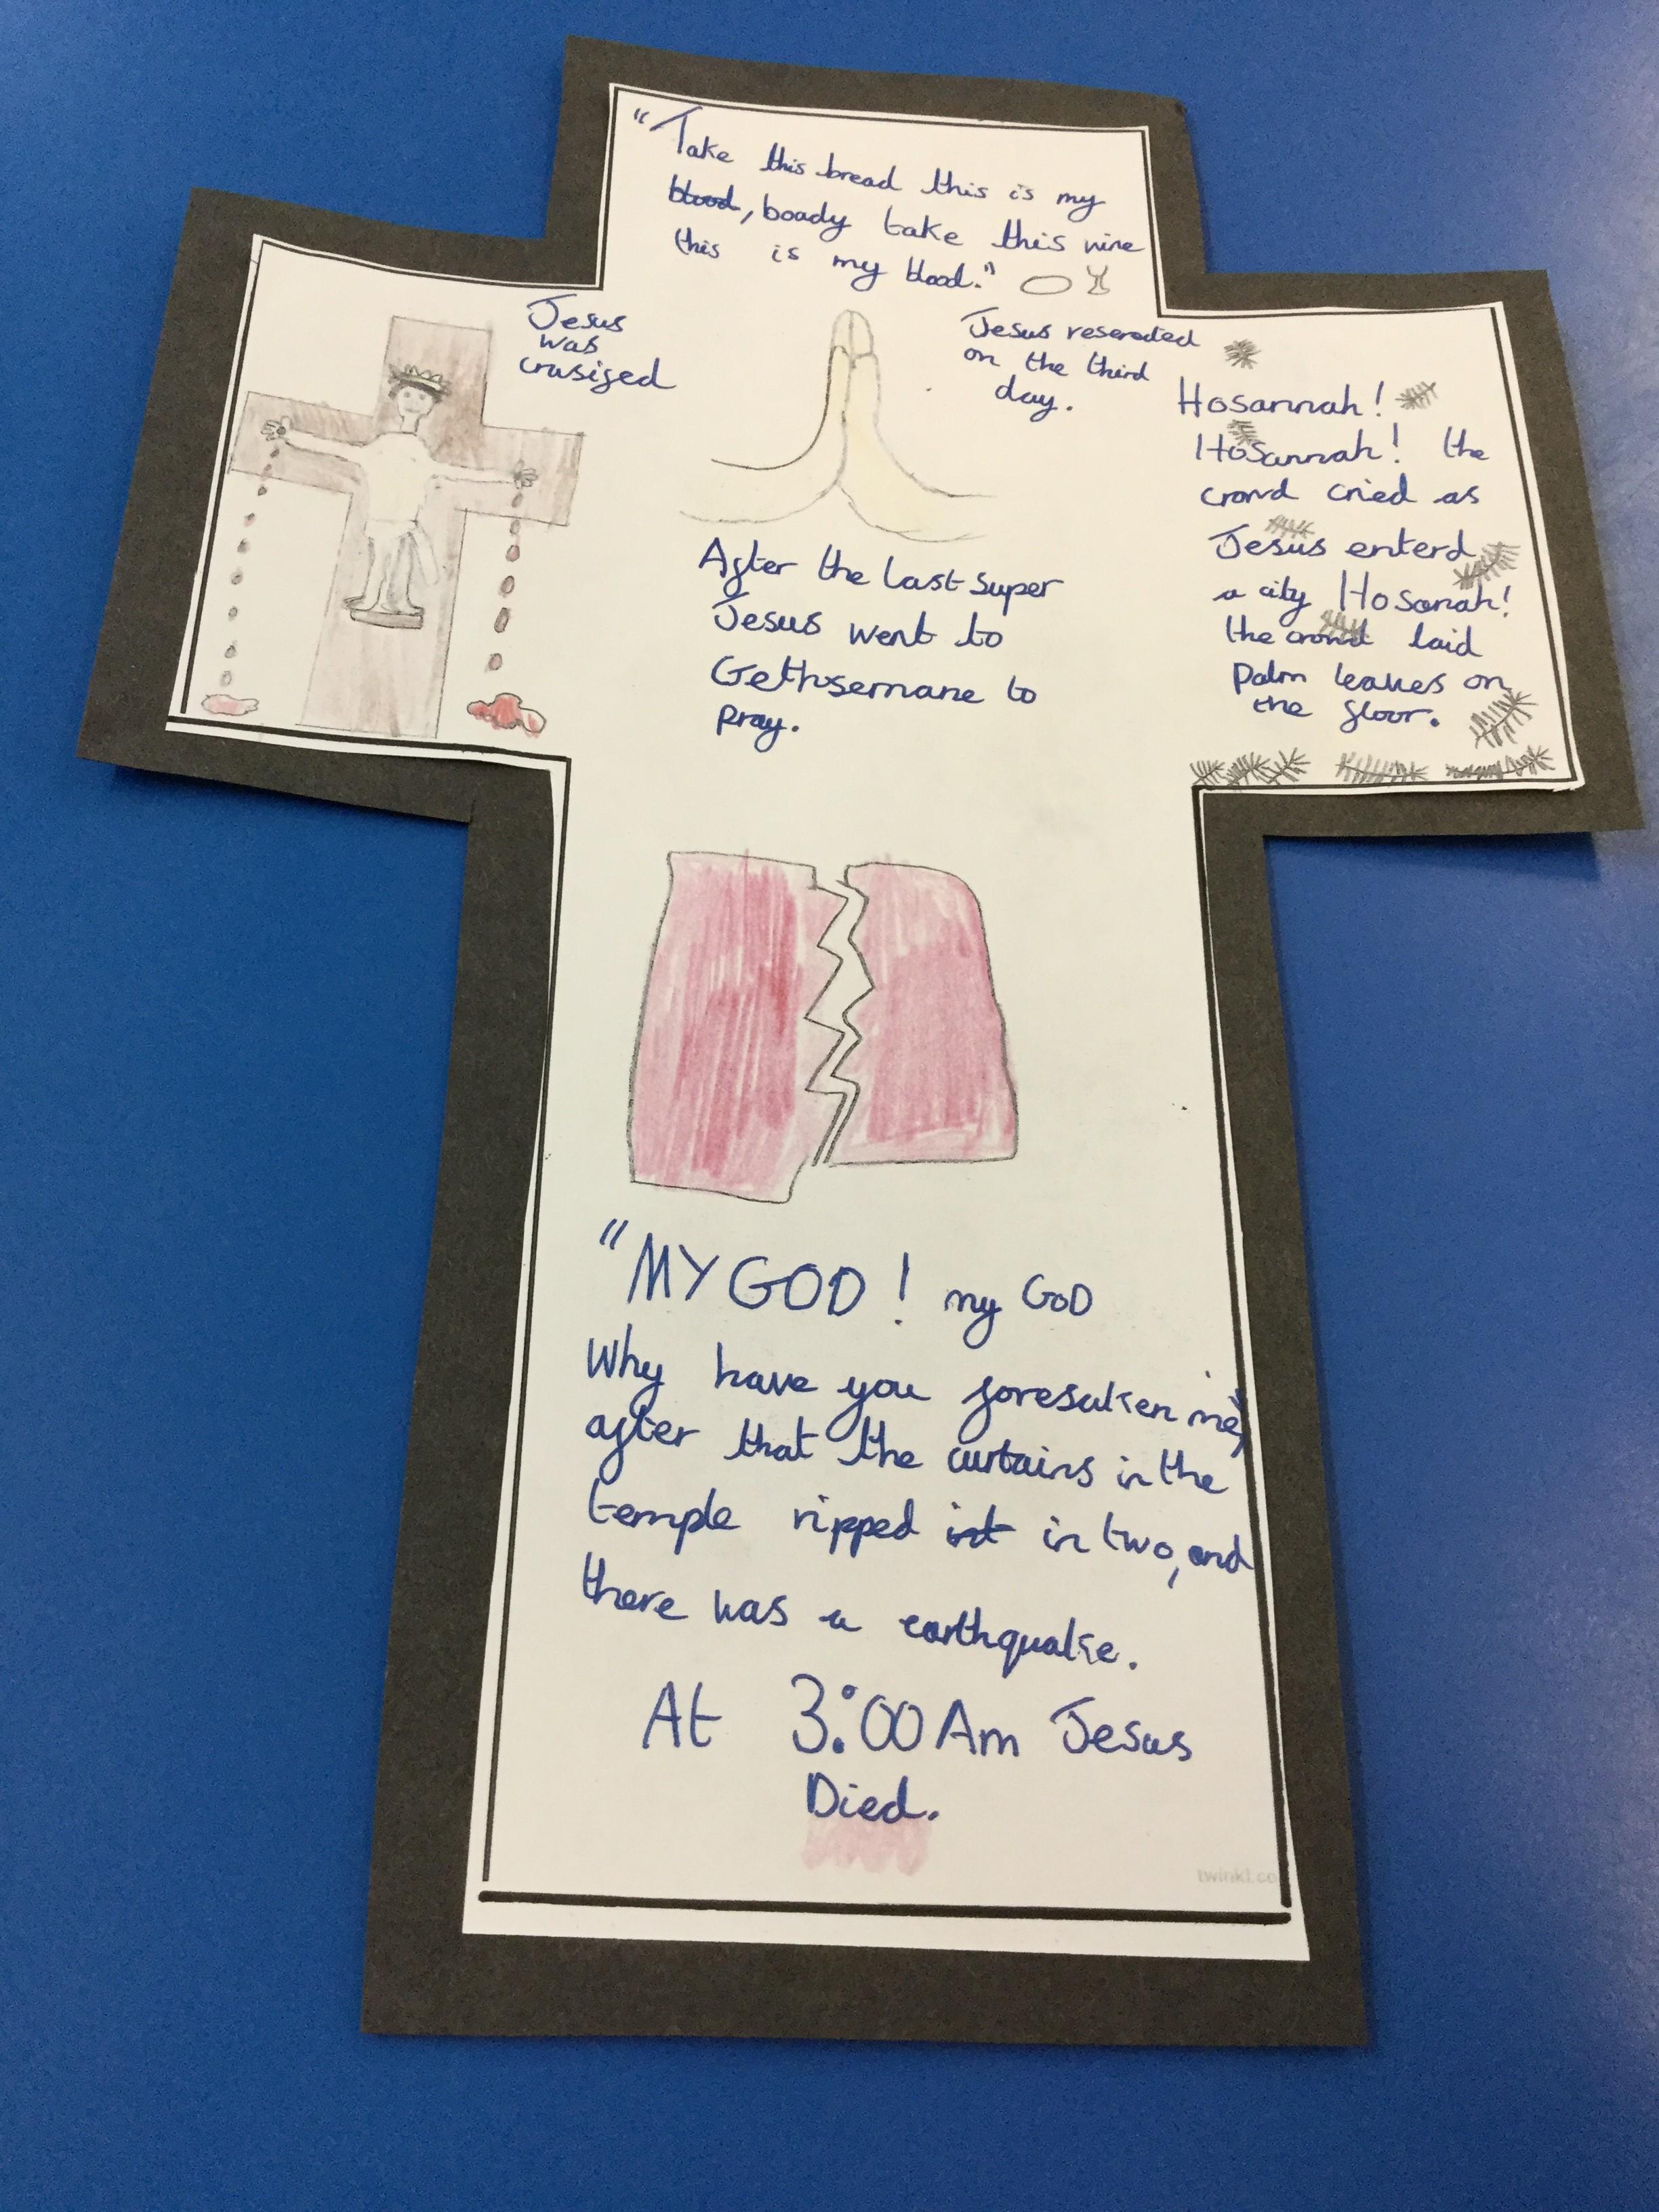 "Take this bread this is my
blood, boady take this wine
this is my blood."
Jesus
was
crusized
Jesus reserected
on the third
day.
After the last super
Jesus went to
Gethsemane to
pray.
Hosannah!
Hosannah! the
crowd cried as
Jesus enterd
a city Hosanah!
the crowd laid
palm leaves on
the floor.
"MY GOD! my GOD
Why have you foresaken me,"
after that the curtains in the
temple ripped int in two, and
there was a earthquake.
At 3:00 Am Jesus
Died.
twinkl.co